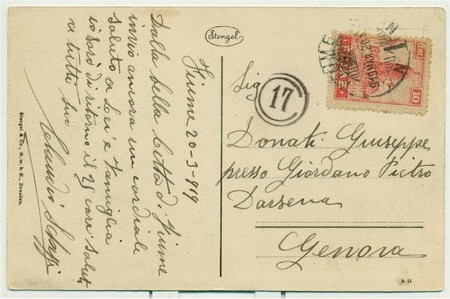 Stengel
Fiume 20-3-919
Dalla bella Città di Fiume
invio ancora un cordiale
saluto a Lei e Famiglia
io sarò di ritorno il 25 cari saluti
a tutti
Stengel & Co., G. m. b. H., Dresden.
17
FIUME
FIUME
10
Sig
Donati Giuseppe,
presso Giordano Pietro
Darsena
Genova